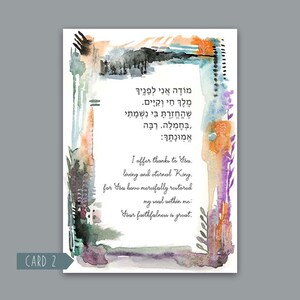 מוֹדֶה אֲנִי לְפָנֶיךָ
מֶלֶךְ חַי וְקַיָּים.
שֶׁהֶחֱזַרְתָּ בִּי נִשְׁמָתִי
,בְּחֶמְלָה. רַבָּה
אֱמוּנָתֶךָ:
I offer thanks to You,
living and eternal King,
for You have mercifully restored
my soul within me:
Your faithfulness is great.
CARD 2